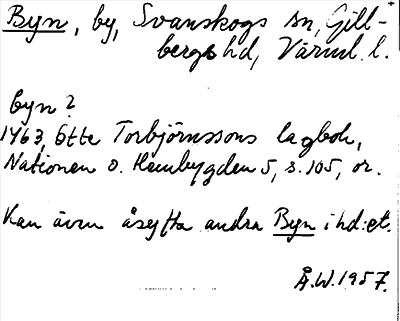 Byn, by, Svanskogs sn, Gill-
bergs hd, Värml. l.
byn?
1463, Otte Torbjörnssons lagbok,
Nationen o. Hembygden 5, s. 105, or.
Kan även åsyfta andra Byn i hd:et.
Å.W. 1957.